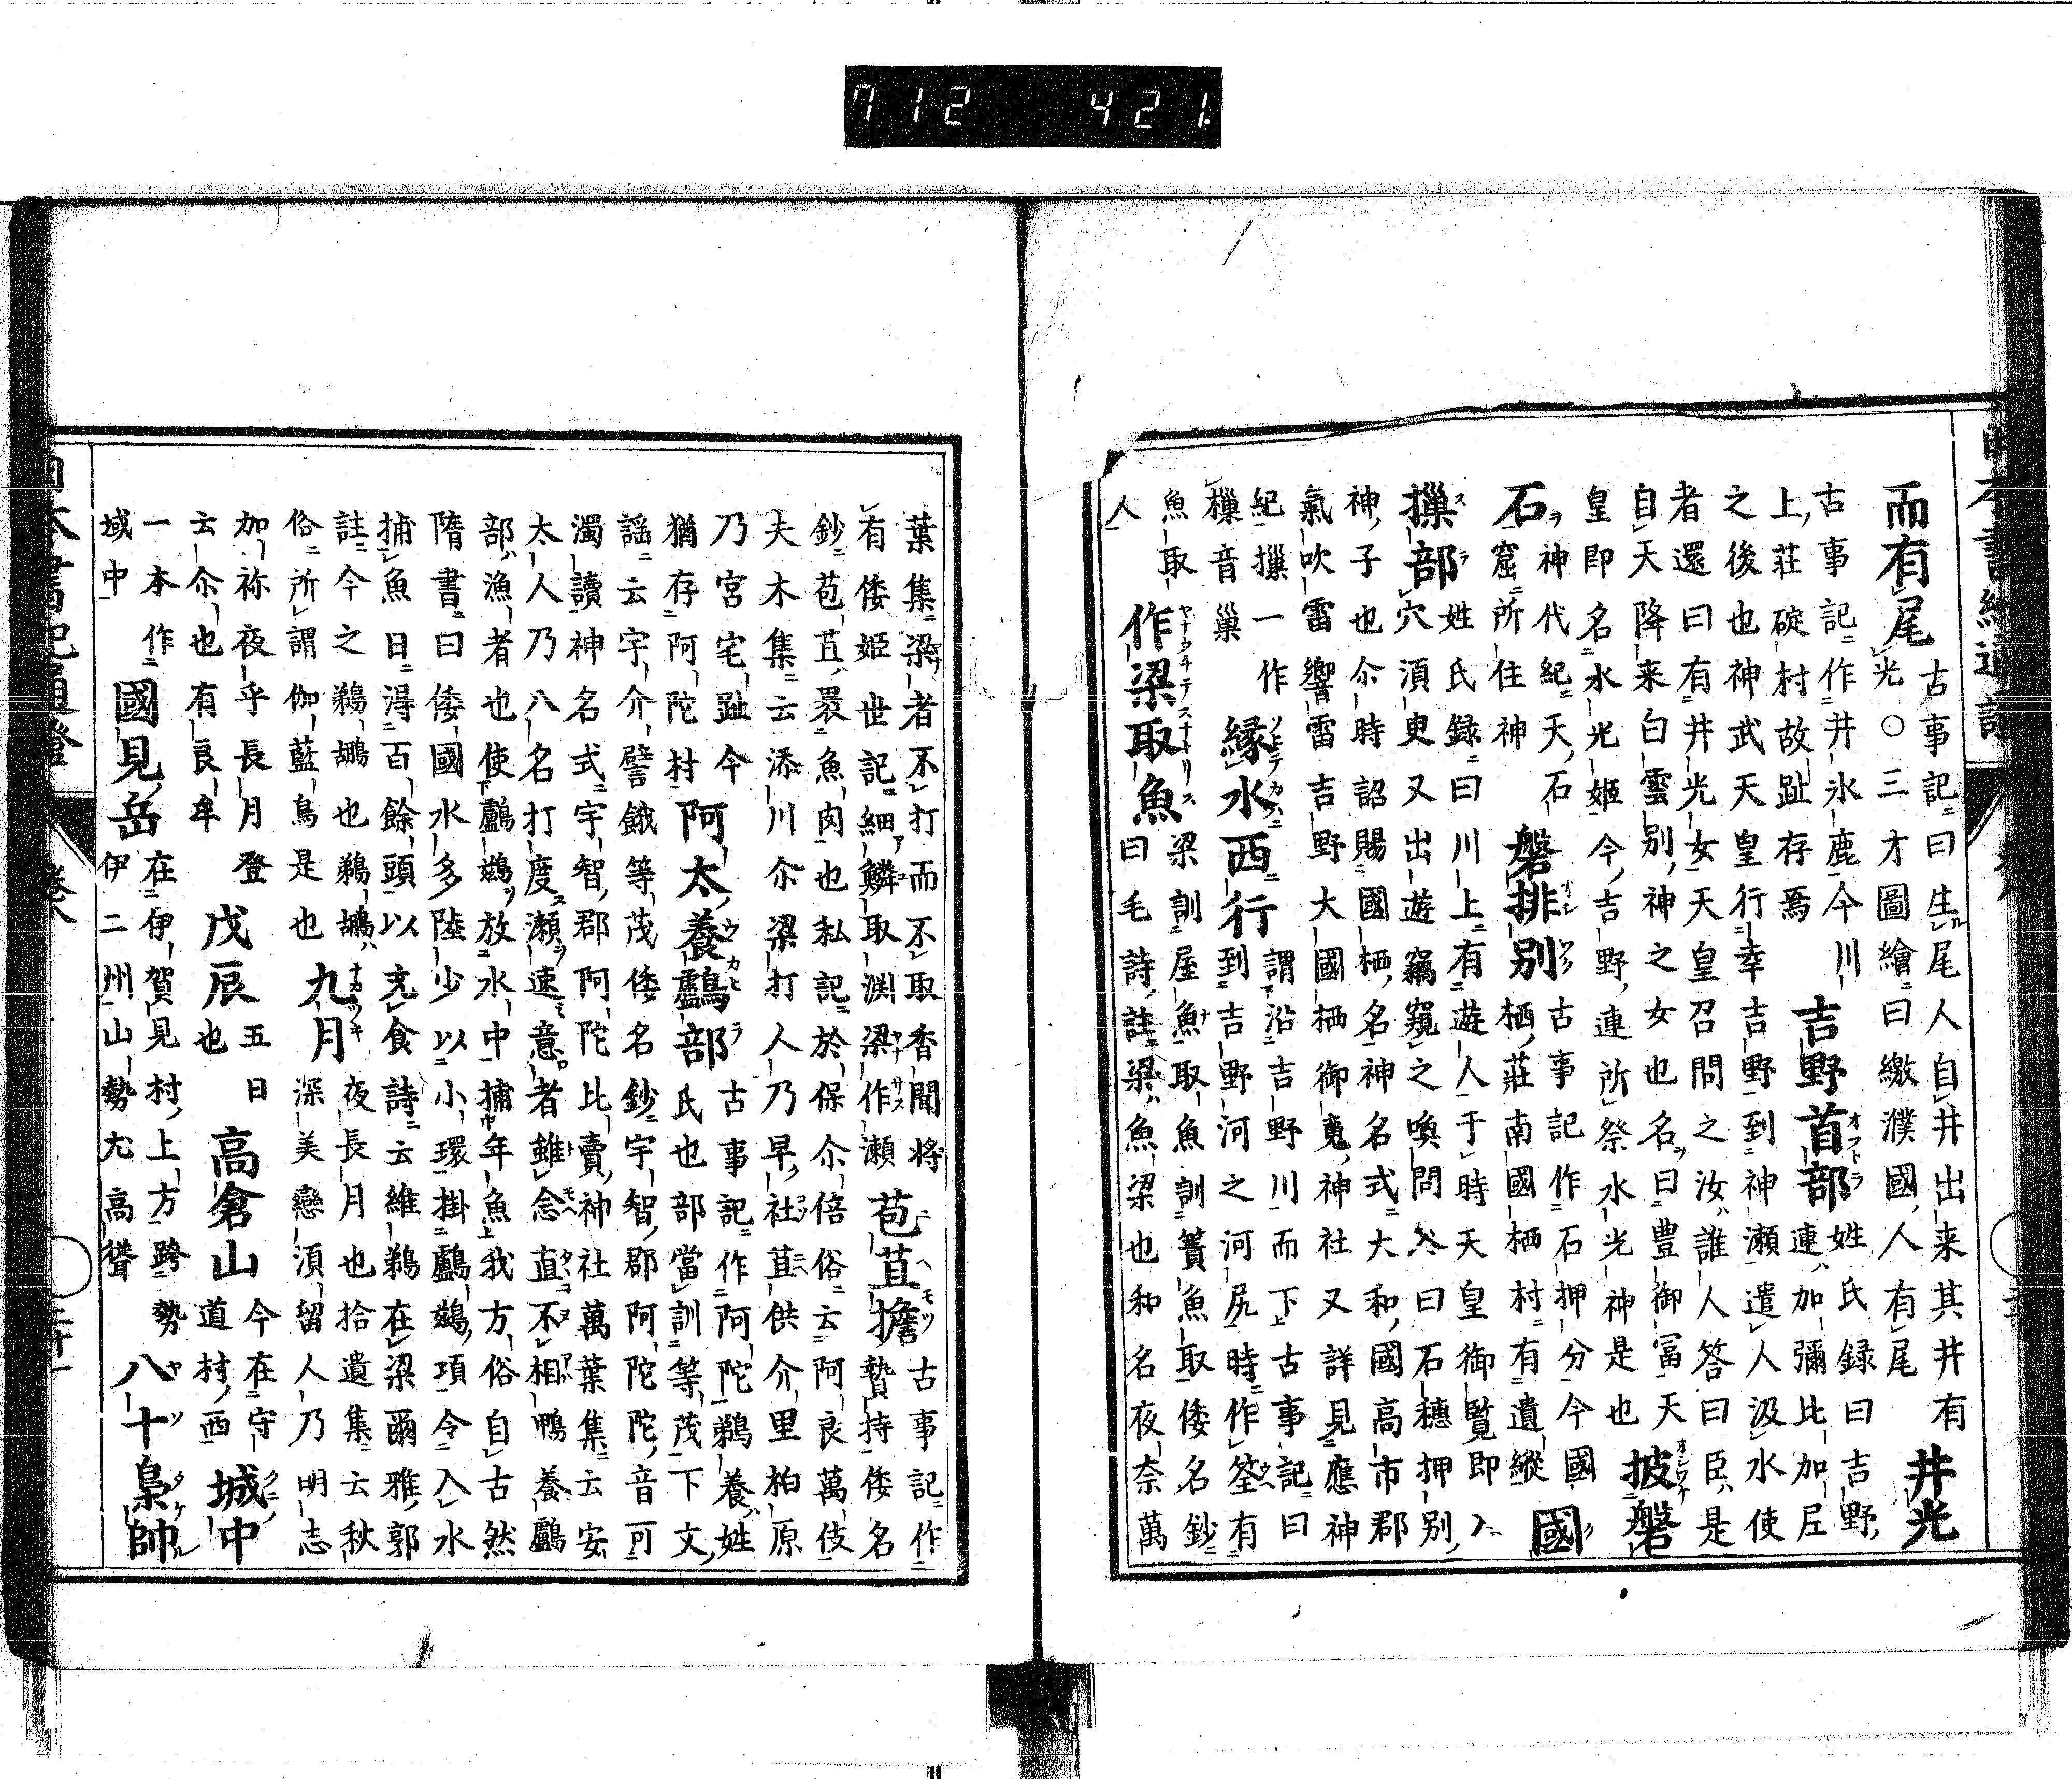 712 421.
而有尾 古事記曰生尾人自井出来其井有
光○三才圖繪曰繳濮國人有尾 井光
古事記作井氷鹿今川 吉野首部 姓氏録曰吉野
上莊碇村故趾存焉 連加彌比加尼
之後也神武天皇行幸吉野到神瀬遣人汲水使
者還曰有井光女天皇召問之汝誰人答曰臣是
自天降来白雲別神之女也名曰豊御冨天
皇即名水光姬今吉野連所祭水光神是也 披磐
石 神代紀天石 磐排別 古事記作石押分今國
窟所住神 栖莊南國栖村有遺縱 國
樔部 姓氏録曰川上有遊人于時天皇御覧即入
穴湏臾又出遊竊窺之喚問答曰石穗押別
神子也尒時詔賜國栖名神名式大和國高市郡
氣吹雷響雷吉野大國栖御䰟神社又詳見應神
紀樔一作
樔音巢 縁水西行 謂沿吉野川而下古事記曰
到吉野河之河尻時作筌有
魚取
人 作梁取魚 梁訓屋魚取魚訓簀魚取倭名鈔
曰毛詩註梁魚梁也和名夜奈萬
葉集梁者不打而不取香聞將 苞苴擔 古事記作
有倭姬世記細鱗取渊梁作瀬 贄持倭名
鈔苞苴褁魚肉也私記於保尒倍俗云阿良萬伎
夫木集云添川尒梁打人乃早社苴供介里柏原
乃宮宅趾今
猶存阿陀村 阿太養鸕部 古事記作阿陀鵜養姓
氏也部當訓等茂下文
謡云宇介譬餓等茂倭名鈔宇智郡阿陀陀音可
濁讀神名式宇智郡阿陀比賣神社萬葉集云安
太人乃八名打度瀬速意者雖念直不相鴨養鸕
部漁者也使鸕鷀放水中捕年魚我方俗自古然
隋書曰倭國水多陸少以小環掛鸕鷀項令入水
捕魚日淂百餘頭以充食詩云維鵜在梁爾雅郭
註今之鵜鶘也鵜鶘
俗所謂伽藍鳥是也 九月 夜長月也拾遺集云秋
深美戀湏留人乃明志
加祢夜乎長月登
云尒也有良牟 戊辰 五日
也 高倉山 今在守
道村西 城中
一本作
域中 國見岳 在伊賀見村上方跨勢
伊二州山勢尢高聳 八十梟帥